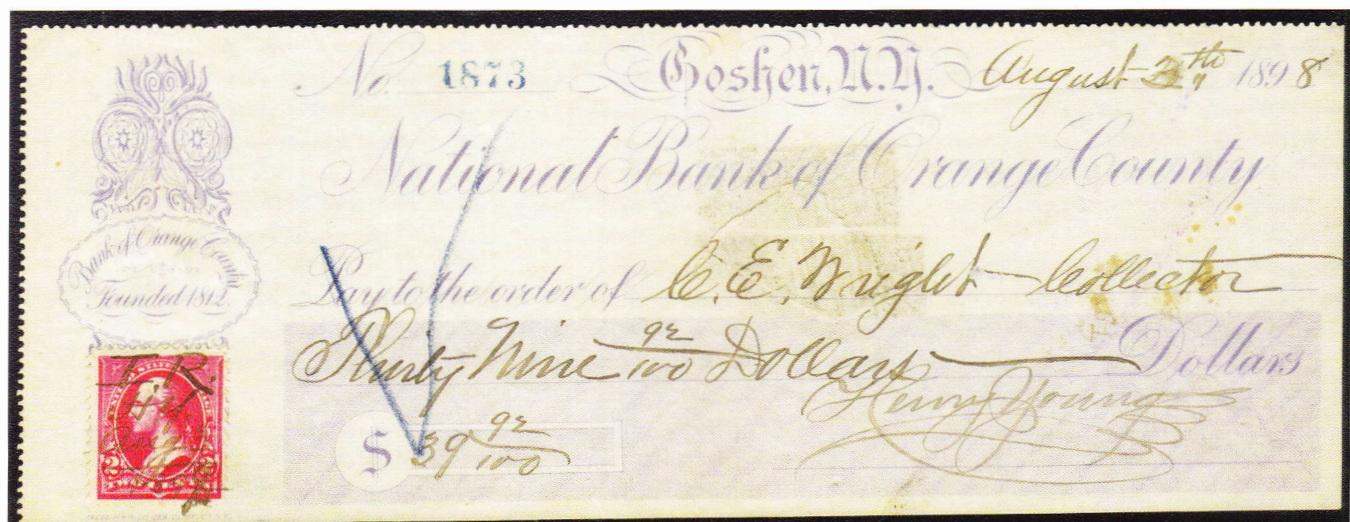 No. 1873 Goshen, N.Y. August th 1898
National Bank of Orange County
Bank of Orange County
Founded 1812
Pay to the order of C. E. Wright Collector
Thirty Nine 92/100 Dollars Dollars
Henry Young
$ 39 92/100
I. R.
UNITED STATES
2 2
TWO CENTS